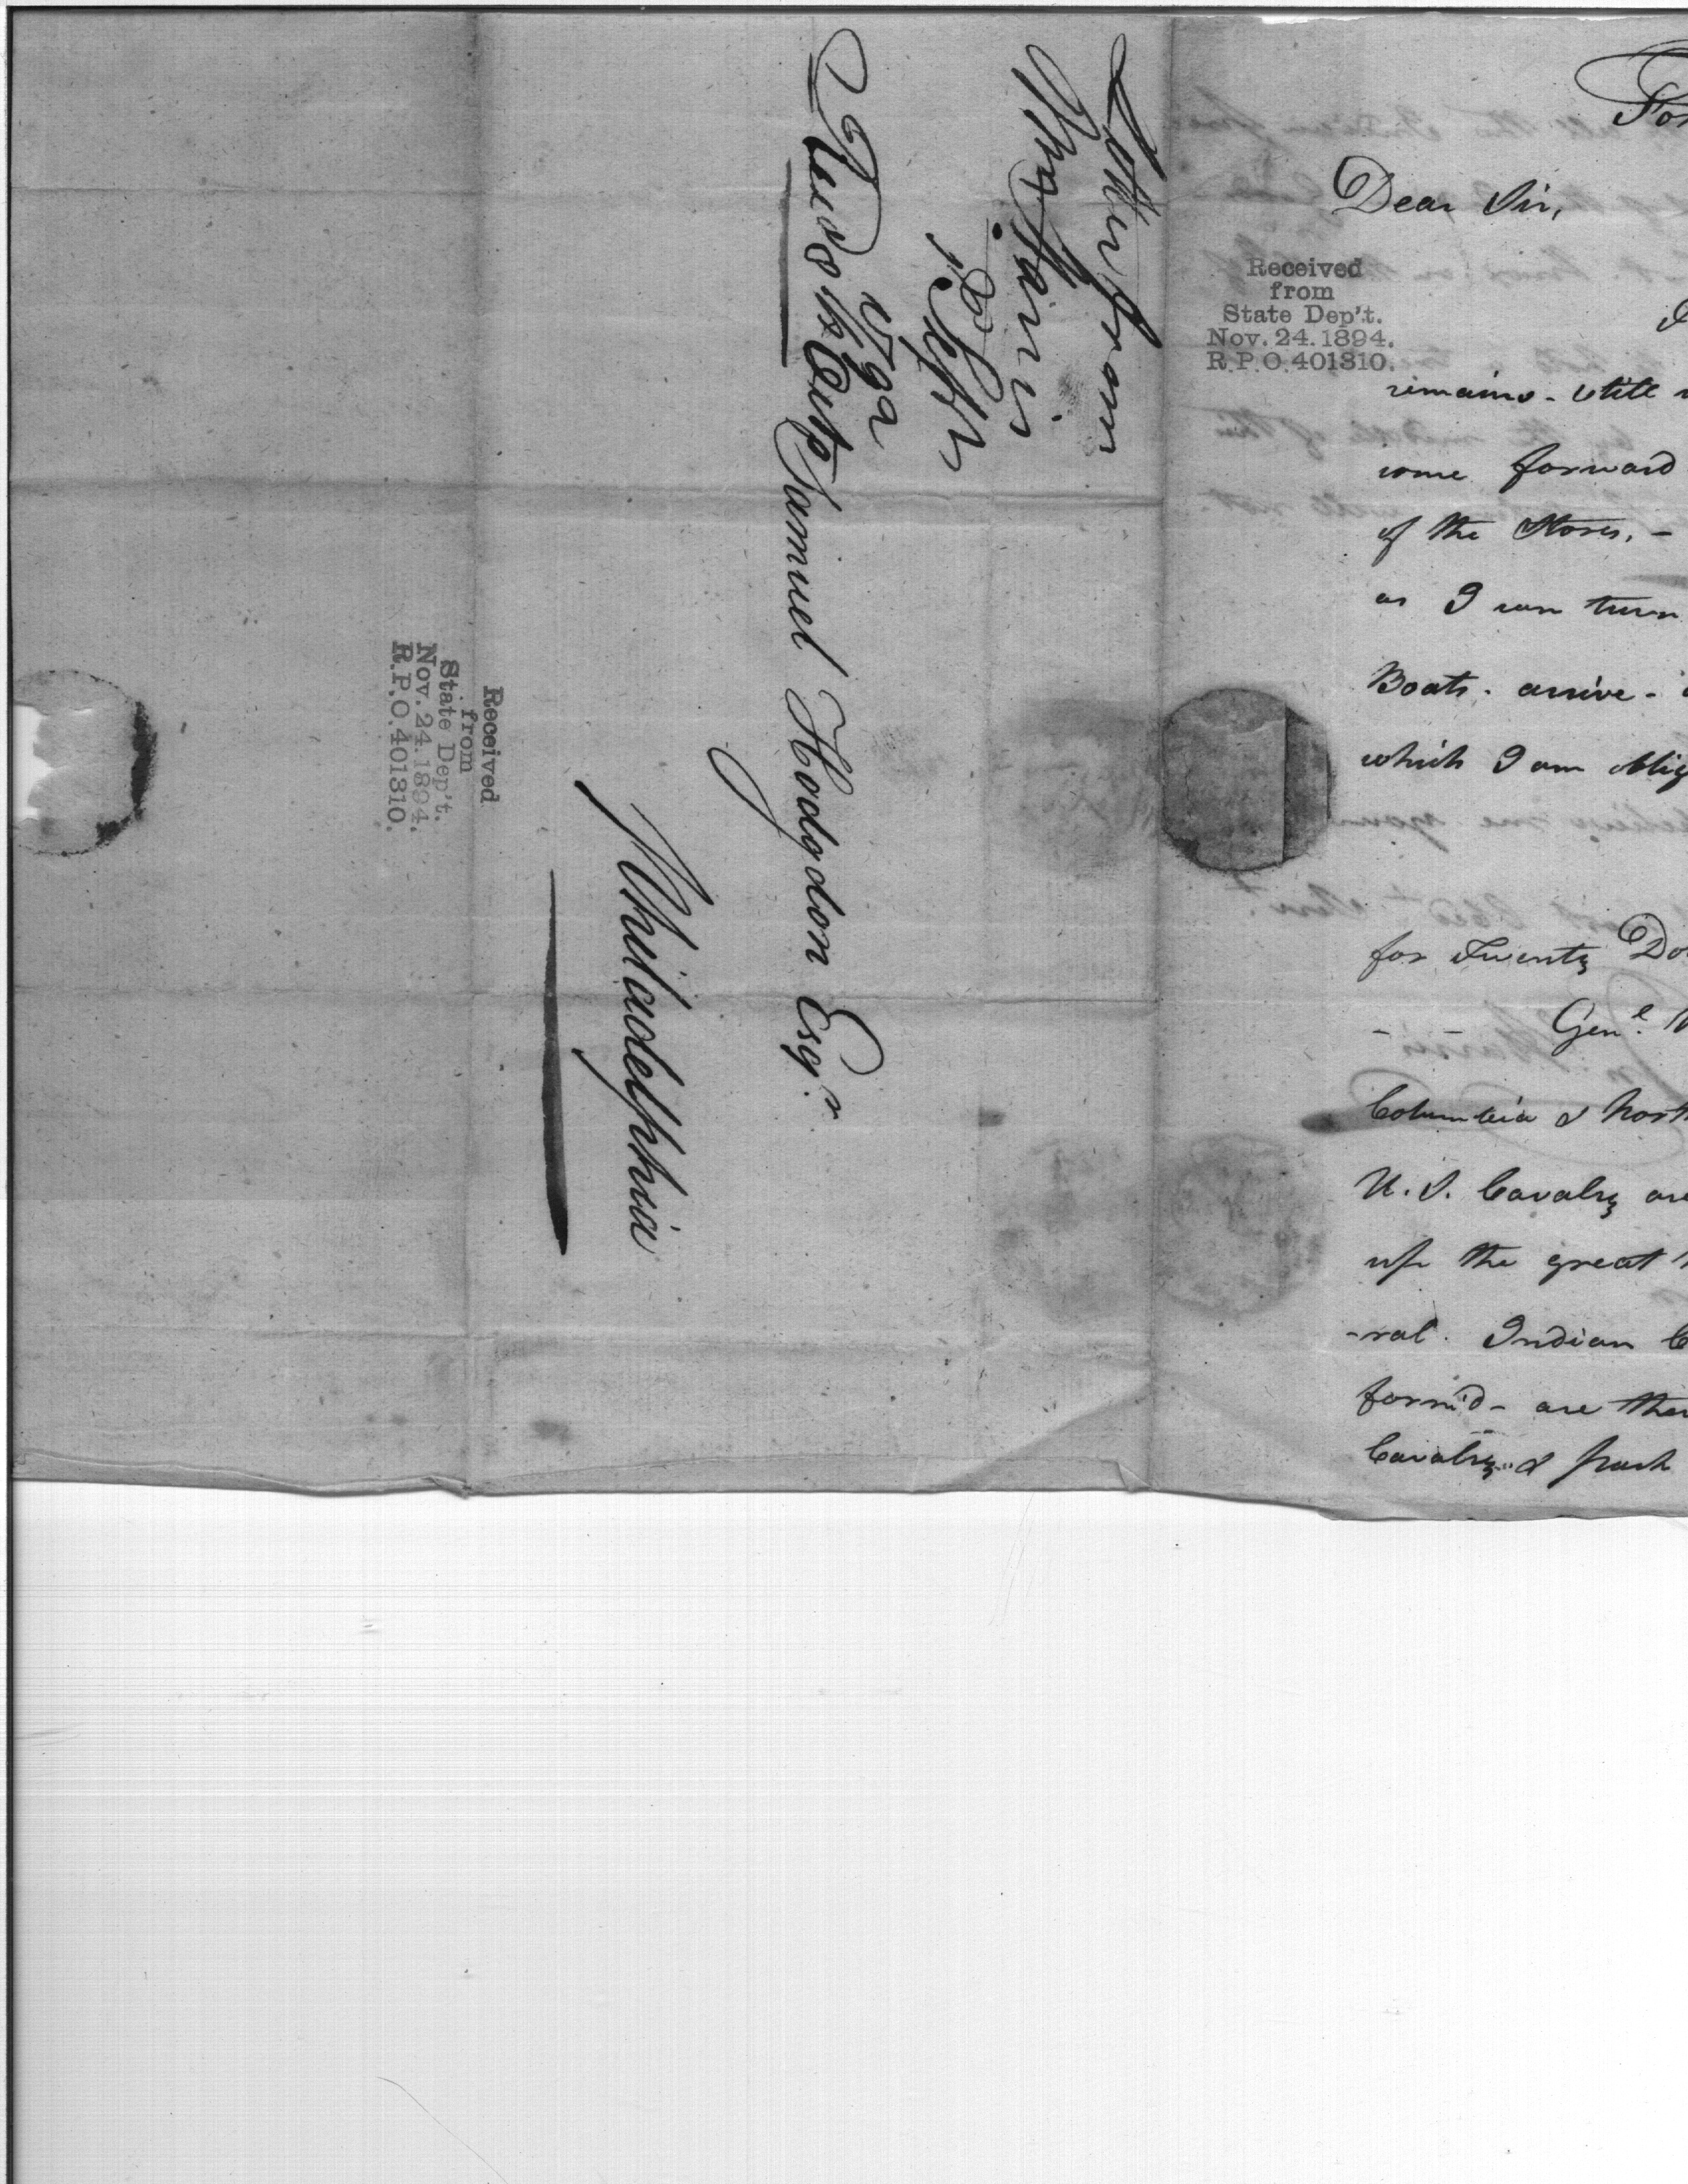 Letter from
Jno. Harris
1st. Septr
1792
Recd. 16 Octo
Samuel Hodgdon Esqr.
Philadelphia
Received
from
State Dep't.
Nov. 24. 1894.
R.P.O. 401310.
For
Dear Sir,
Received
from
State Dep't.
Nov. 24. 1894.
R.P.O. 401310.
remains - still
come forward
of the Stores, -
as I can turn
Boats. arrive -
which I am oblig
for Twenty Do
Genl.
Columbia & North
U.S. Cavalry are
up the great
-ral. Indian C
form'd - are ther
Cavalry & push